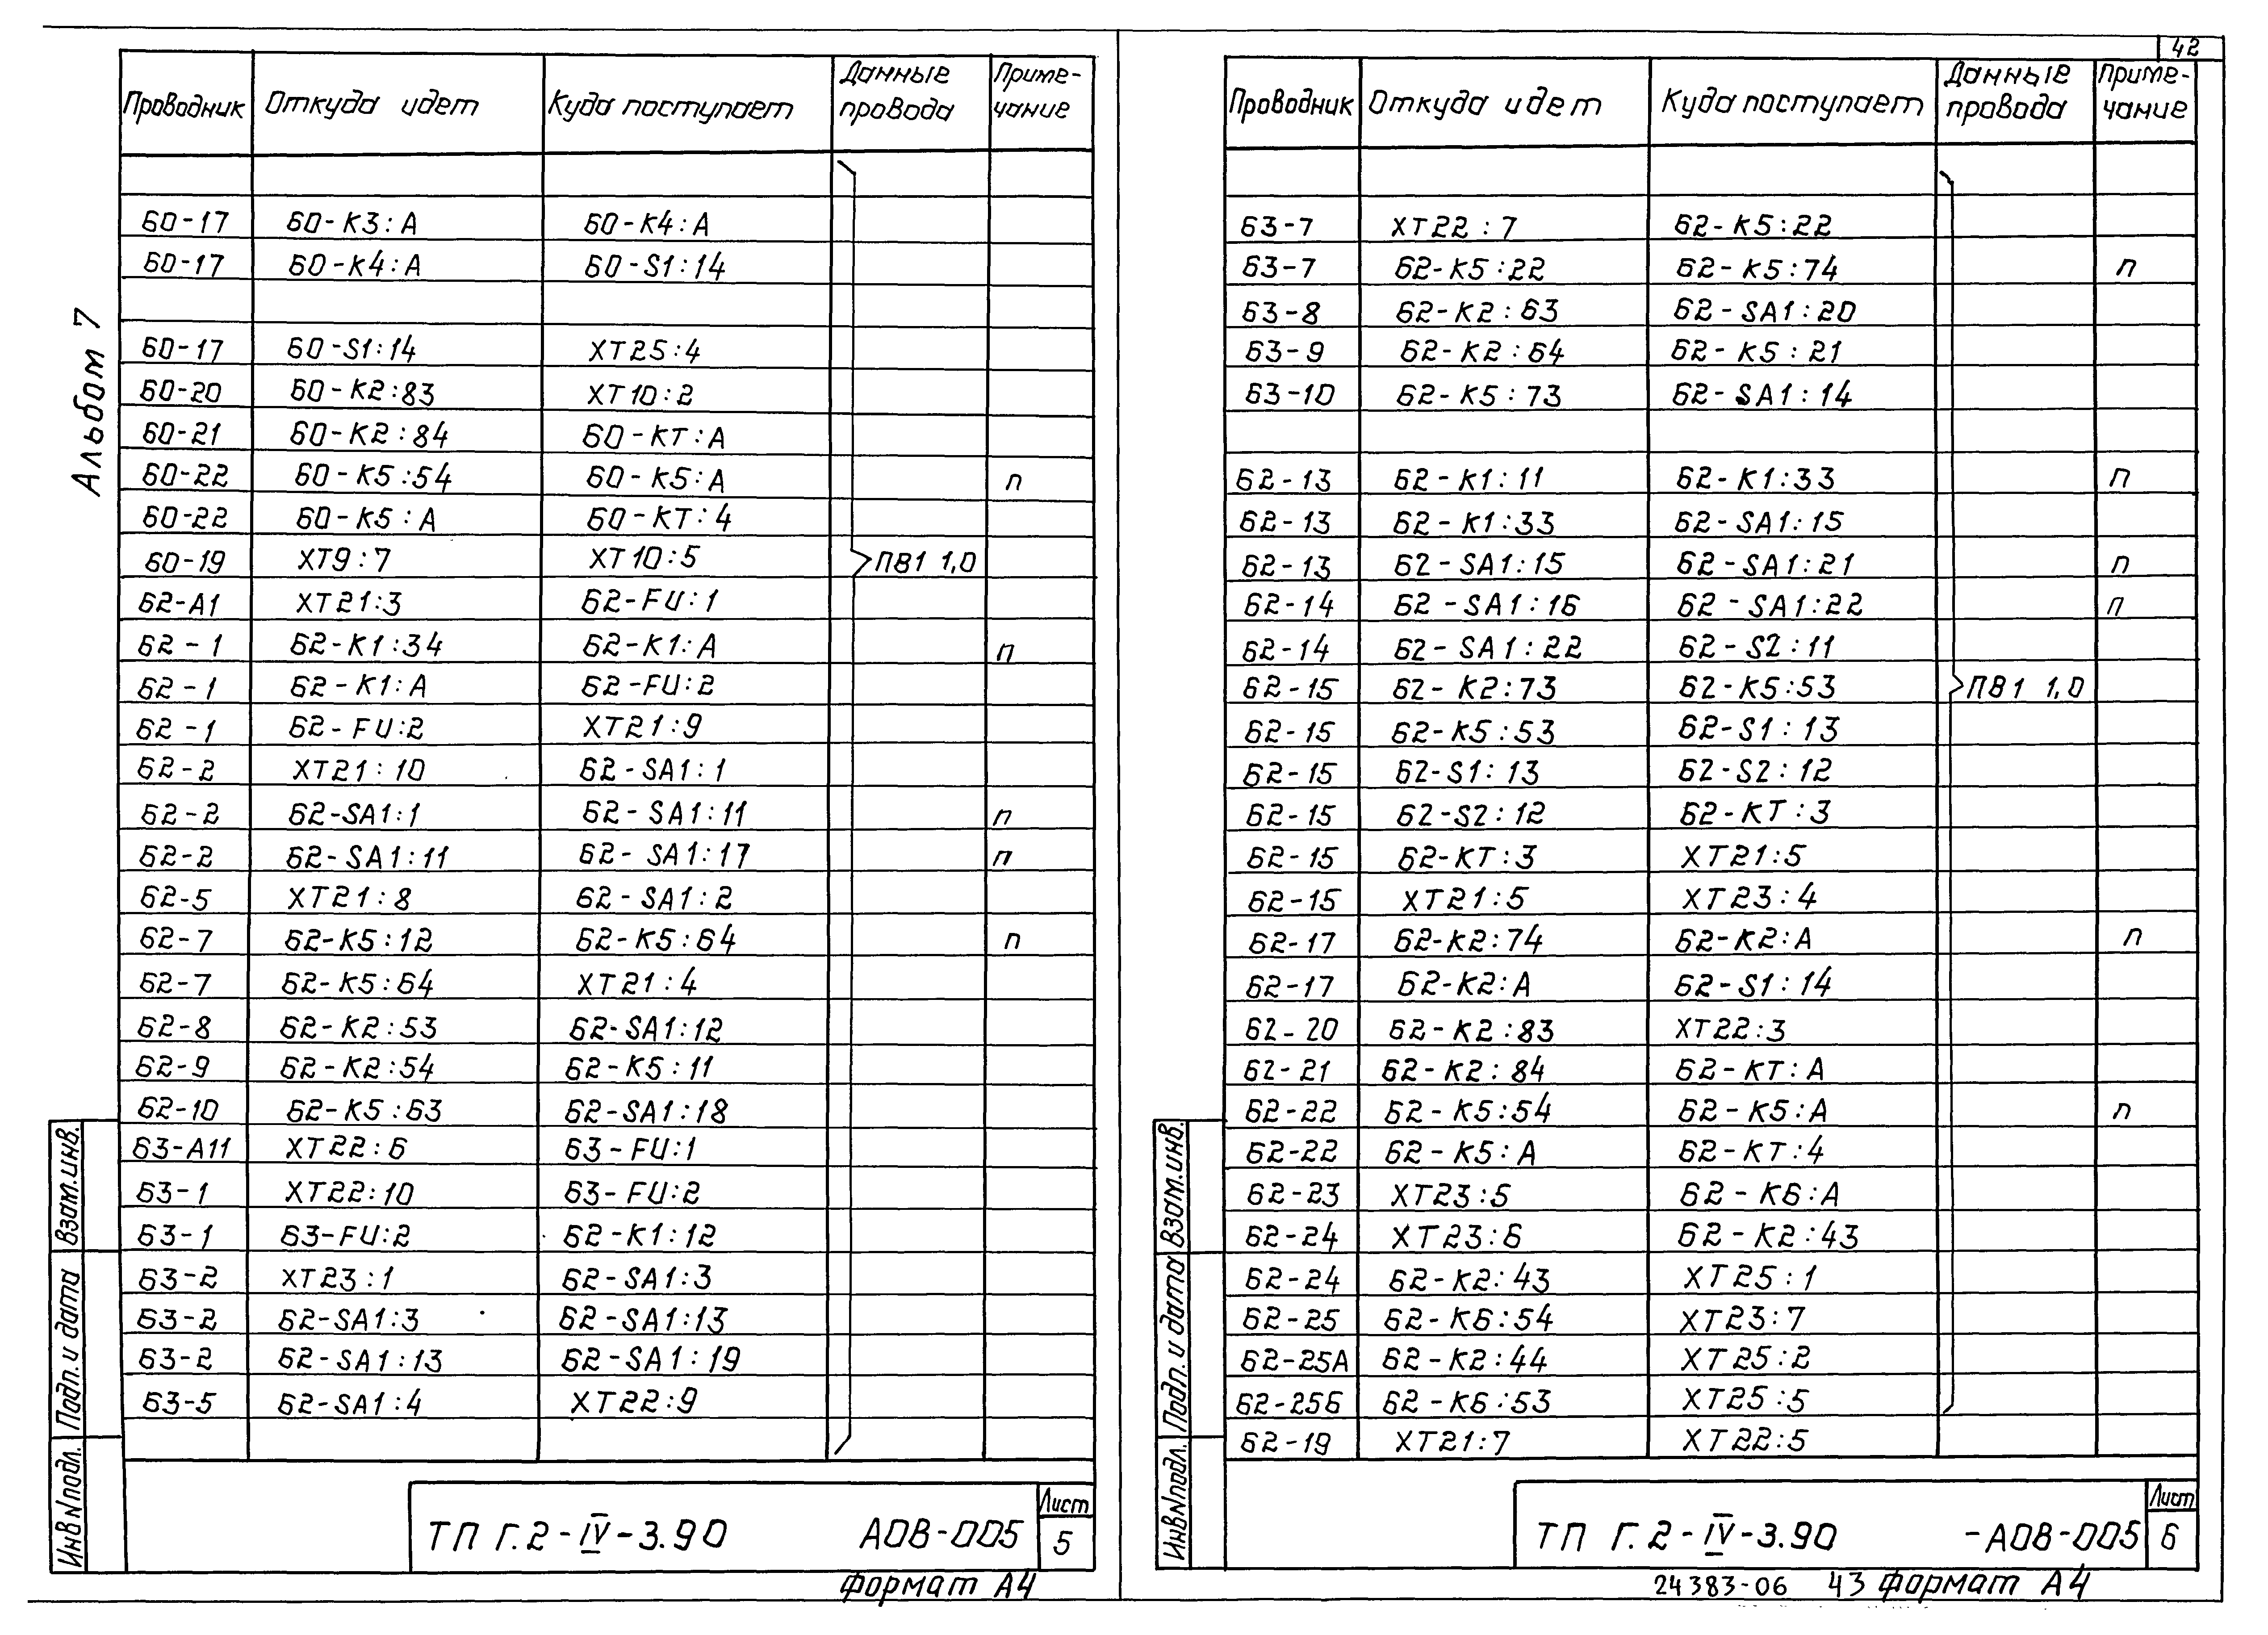 42
Альбом 7
Проводник Откуда идет Куда поступает Данные провода Приме-чание
60-17 60-К3:А 60-К4:А
60-17 60-К4:А 60-S1:14
60-17 60-S1:14 ХТ25:4
60-20 60-К2:83 ХТ10:2
60-21 60-К2:84 60-КТ:А
60-22 60-К5:54 60-К5:А п
60-22 60-К5:А 60-КТ:4
60-19 ХТ9:7 ХТ10:5 ПВ1 1,0
62-А1 ХТ21:3 62-FU:1
62-1 62-К1:34 62-К1:А п
62-1 62-К1:А 62-FU:2
62-1 62-FU:2 ХТ21:9
62-2 ХТ21:10 62-SA1:1
62-2 62-SA1:1 62-SA1:11 п
62-2 62-SA1:11 62-SA1:17 п
62-5 ХТ21:8 62-SA1:2
62-7 62-К5:12 62-К5:64 п
62-7 62-К5:64 ХТ21:4
62-8 62-К2:53 62-SA1:12
62-9 62-К2:54 62-К5:11
62-10 62-К5:63 62-SA1:18
63-А11 ХТ22:6 63-FU:1
63-1 ХТ22:10 63-FU:2
63-1 63-FU:2 62-К1:12
63-2 ХТ23:1 62-SA1:3
63-2 62-SA1:3 62-SA1:13
63-2 62-SA1:13 62-SA1:19
63-5 62-SA1:4 ХТ22:9
Взам.инв.
Подп. и дата
Инв N подл.
ТП Г.2-IV-3.90 АОВ-005
Лист
5
Формат А4
Проводник Откуда идет Куда поступает Данные провода Приме-чание
63-7 ХТ22:7 62-К5:22
63-7 62-К5:22 62-К5:74 п
63-8 62-К2:63 62-SA1:20
63-9 62-К2:64 62-К5:21
63-10 62-К5:73 62-SA1:14
62-13 62-К1:11 62-К1:33 п
62-13 62-К1:33 62-SA1:15
62-13 62-SA1:15 62-SA1:21 п
62-14 62-SA1:16 62-SA1:22 п
62-14 62-SA1:22 62-S2:11
62-15 62-К2:73 62-К5:53 ПВ1 1,0
62-15 62-К5:53 62-S1:13
62-15 62-S1:13 62-S2:12
62-15 62-S2:12 62-КТ:3
62-15 62-КТ:3 ХТ21:5
62-15 ХТ21:5 ХТ23:4
62-17 62-К2:74 62-К2:А п
62-17 62-К2:А 62-S1:14
62-20 62-К2:83 ХТ22:3
62-21 62-К2:84 62-КТ:А
62-22 62-К5:54 62-К5:А п
62-22 62-К5:А 62-КТ:4
62-23 ХТ23:5 62-К6:А
62-24 ХТ23:6 62-К2:43
62-24 62-К2:43 ХТ25:1
62-25 62-К6:54 ХТ23:7
62-25А 62-К2:44 ХТ25:2
62-25Б 62-К6:53 ХТ25:5
62-19 ХТ21:7 ХТ22:5
Взам.инв.
Подп. и дата
Инв N подл.
ТП Г.2-IV-3.90 -АОВ-005
Лист
6
24383-06 43 Формат А4